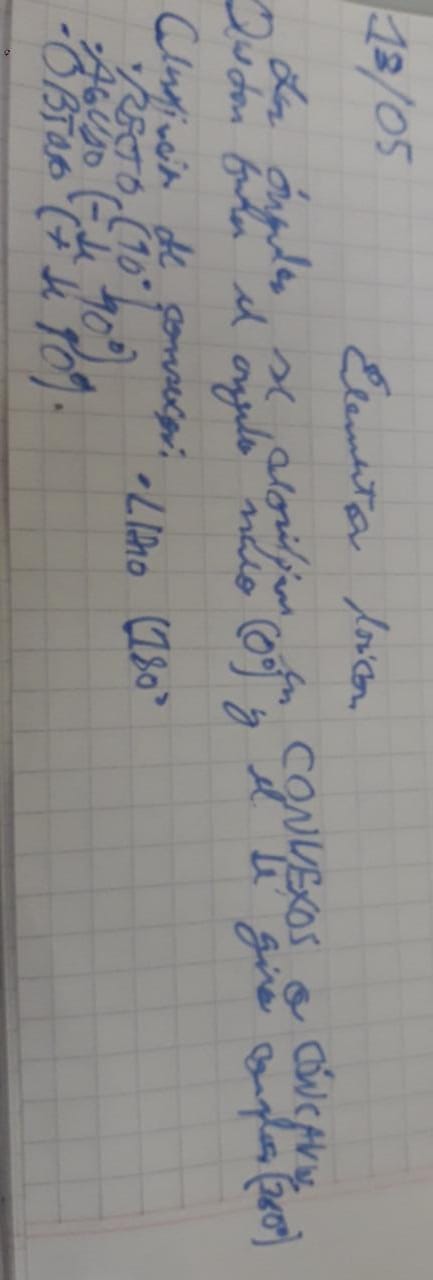 13/05
Elementos básicos
Los ángulos se clasifican en CONVEXOS o CÓNCAVOS.
Quedan fuera el ángulo nulo (0°) y el de giro completo (360°)
Clasificación de convexos:
• RECTO (90°) • LLANO (180°
• AGUDO (- de 90°)
• OBTUSO (+ de 90°).